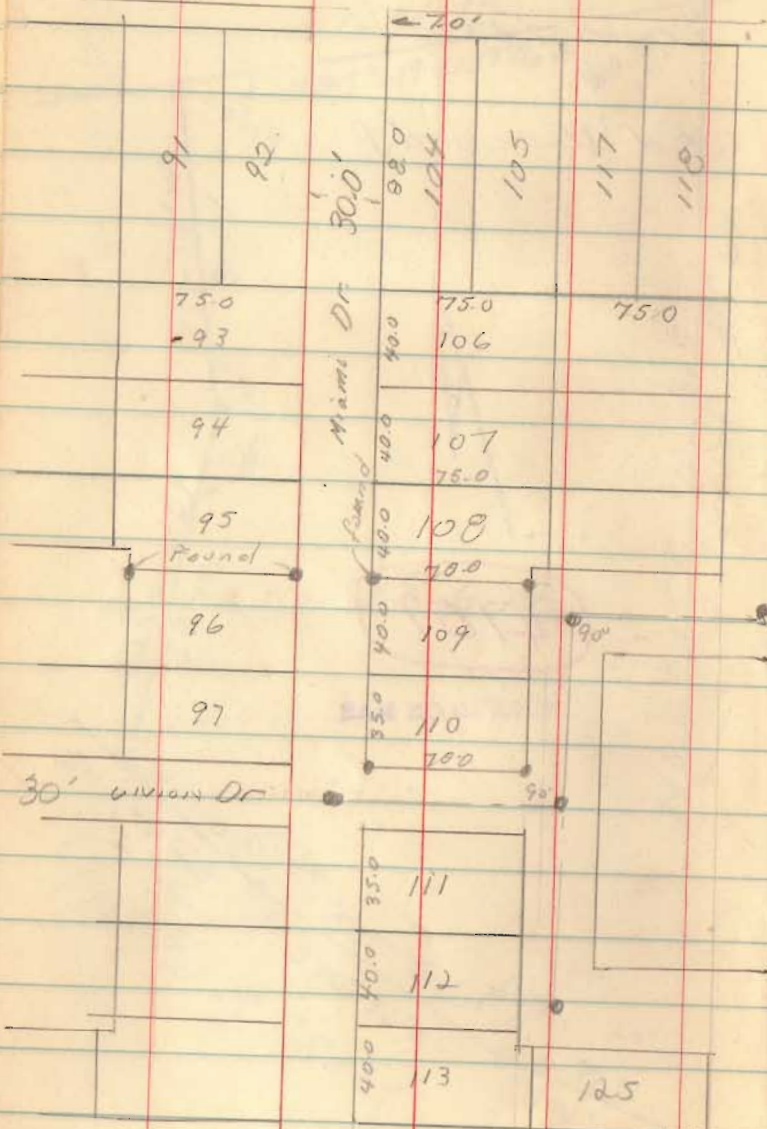 7.0'
91
92
Miami Dr 30.0'
104
105
117
118
75.0
75.0
75.0
93
40.0
106
94
40.0
107
75.0
95
40.0
108
Found
found
70.0
96
40.0
109
90°
97
35.0
110
70.0
30' Dr
90°
35.0
111
40.0
112
40.0
113
125